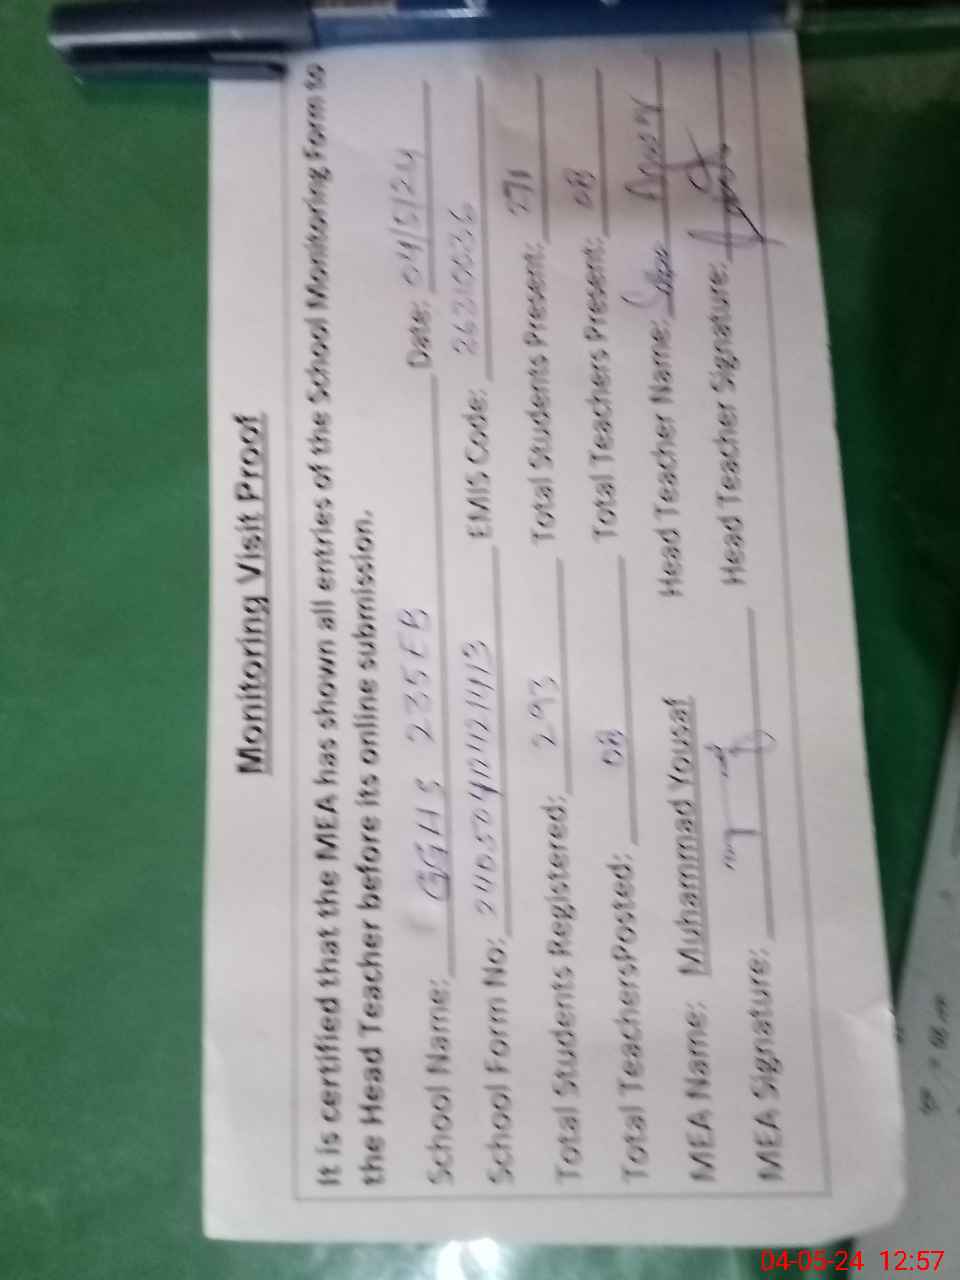 Monitoring Visit Proof
It is certified that the MEA has shown all entries of the School Monitoring Form to
the Head Teacher before its online submission.
School Name: GGHS 235EB Date: 04/5/24
School Form No: EMIS Code:
Total Students Registered: 293 Total Students Present: 271
Total TeachersPosted: 08 Total Teachers Present: 08
MEA Name: Muhammad Yousaf Head Teacher Name:
MEA Signature: Head Teacher Signature:
04-05-24 12:57